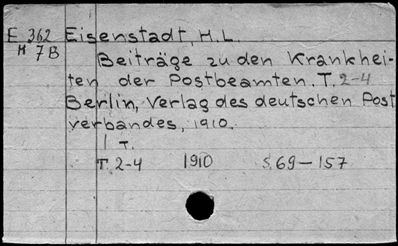 E 362 Eisenstadt, H.L.
H 7B
Beiträge zu den Krankhei-
ten der Postbeamten. T. 2-4
Berlin, Verlag des deutschen Post
verbandes, 1910.
1 T.
T. 2-4 1910 S. 69-157